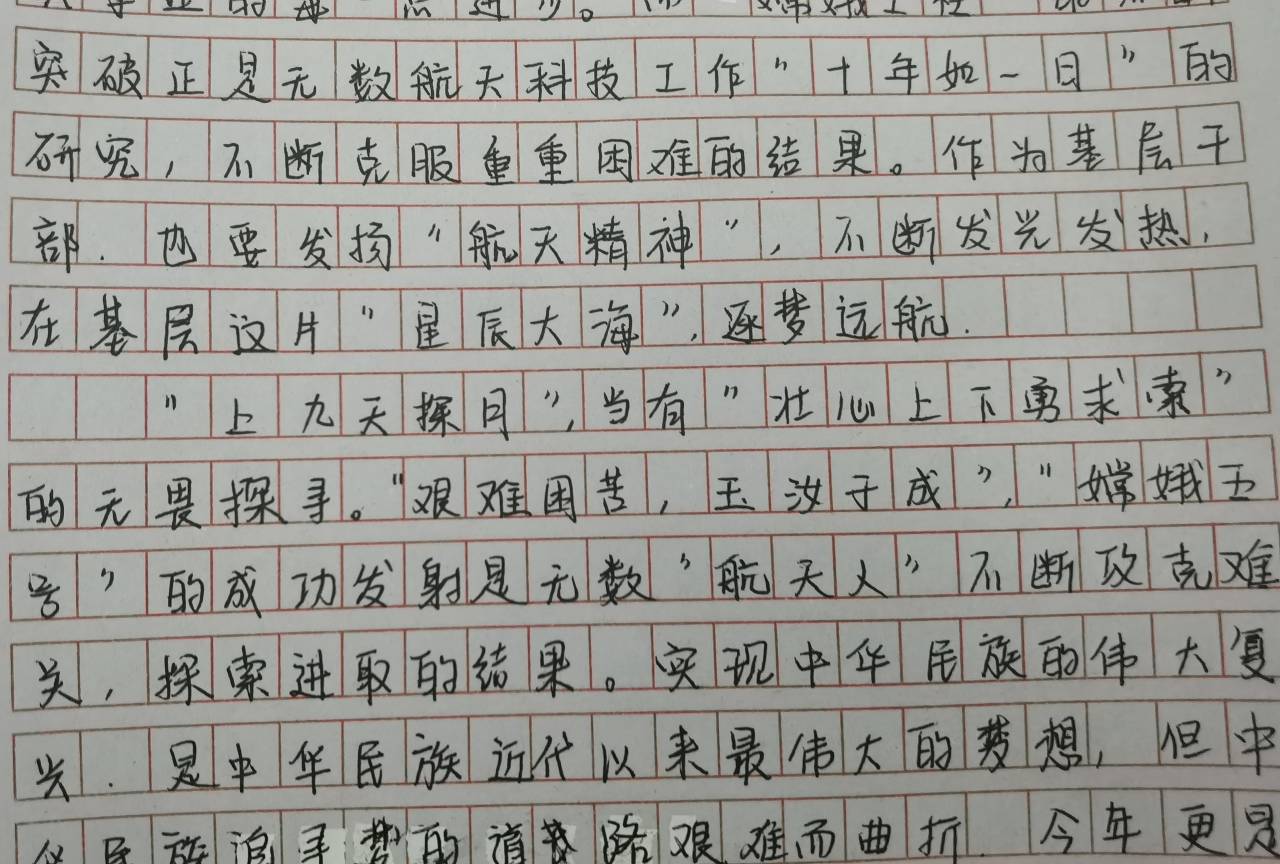 突破正是无数航天科技工作“十年如一日”的
研究,不断克服重重困难的结果。作为基层干
部.也要发扬“航天精神”,不断发光发热,
在基层这片“星辰大海”,逐梦远航.
“上九天探月”,当有“壮心上下勇求索”
的无畏探寻。“艰难困苦,玉汝于成”,“嫦娥五
号”的成功发射是无数“航天人”不断攻克难
关,探索进取的结果。实现中华民族的伟大复
兴.是中华民族近代以来最伟大的梦想,但中
华民族追寻梦的道路艰难而曲折 今年更是